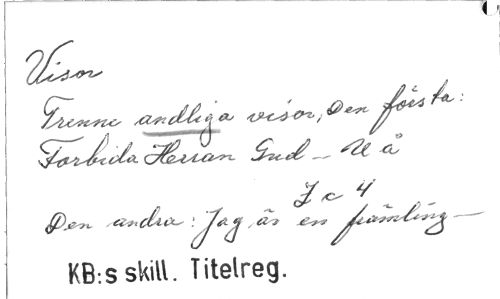 Visor
Trenne andliga visor, Den första:
Forbida Herran Gud _ U å
I c 4
Den andra: Jag är en främling _
KB:s skill. Titelreg.